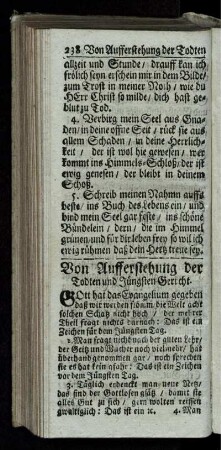 238 Von Aufferstehung der Todten
allzeit und Stunde / drauff kan ich
frölich seyn erschein mir in dem Bilde /
zum Trost in meiner Noth / wie du
HErr Christ so milde / dich hast ge-
blut zu Tod.
4. Verbirg mein Seel aus Gna-
den / in deine offne Seit / rück sie aus
allem Schaden / in deine Herrlich-
keit / der ist wol hie gewesen / wer
kommt ins Himmels-Schloß / der ist
ewig genesen / der bleibt in deinem
Schoß.
5. Schreib meinen Nahmn auffs
beste / ins Buch des Lebens ein / und
bind mein Seel gar feste / ins schöne
Bündelein / dern / die im Himmel
grünen / und für dir leben frey so wil ich
ewig rühmen daß dein Hertz treu sey.
Von Aufferstehung der
Todten und Jüngsten Gericht.
GOtt hat das Evangelium gegeben
daß wir werden fromm, der Welt acht
solchen Schatz nicht hoch / der mehrer
Theil fragt nichts darnach: Das ist ein
Zeichen für dem Jüngsten Tag.
2. Man fragt nicht nach der guten Lehr /
der Geitz und Wucher noch vielmehr / hat
überhand genommen gar / noch sprechen
sie es hat kein gfahr: Das ist ein Zeichen
vor dem Jüngsten Tag.
3. Täglich erdenckt man neue Netz /
das sind der Gottlosen gsätz / damit sie
alles Gut zu sich / gern wolten reissen
gwaltiglich: Das ist ein ꝛc. 4. Man